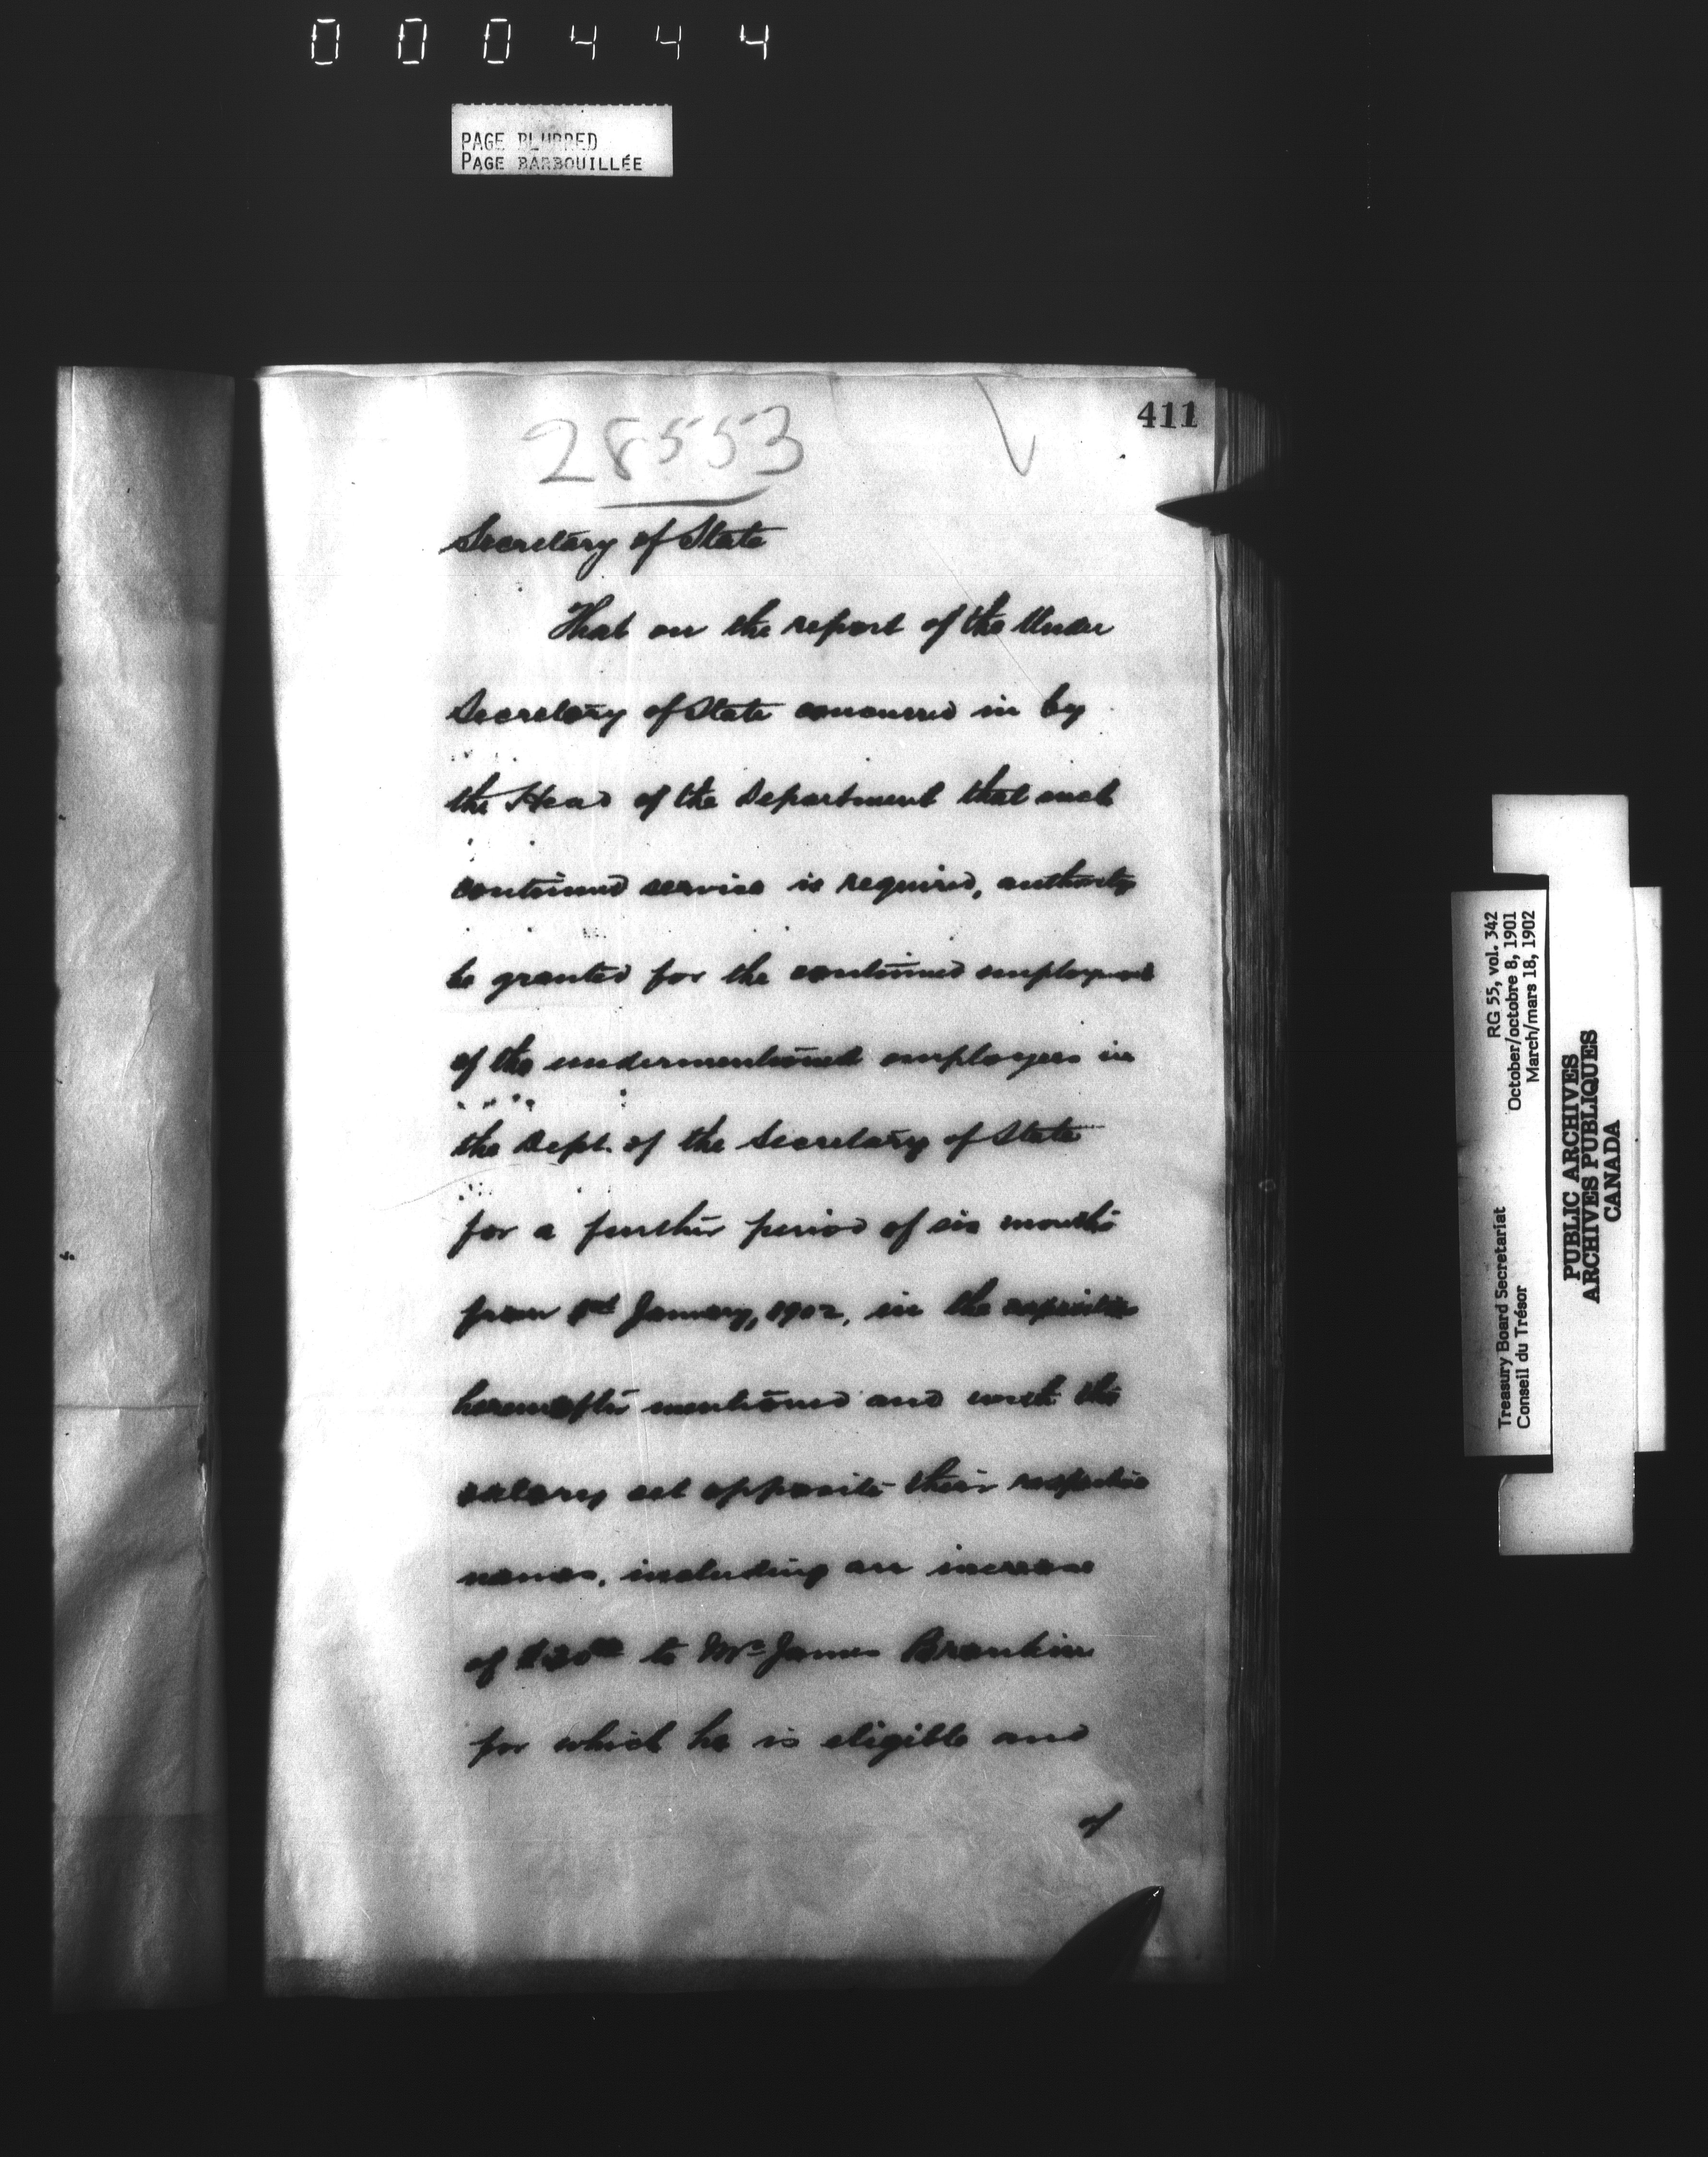 000444
PAGE BLURRED
PAGE BARBOUILLÉE
411
28553
Secretary of State
That on the report of the Under
Secretary of State concurred in by
the Head of the Department that such
continued service is required, authority
be granted for the continued employment
of the undermentioned employees in
the Dept. of the Secretary of State
for a further period of six months
from 1st January, 1902, in the capacities
hereinafter mentioned and with the
salary set opposite their respective
names, including an increase
of to Mr James Brankin
for which he is eligible and
of
RG 55, vol. 342
October/octobre 8, 1901
March/mars 18, 1902
Treasury Board Secretariat
Conseil du Trésor
PUBLIC ARCHIVES
ARCHIVES PUBLIQUES
CANADA